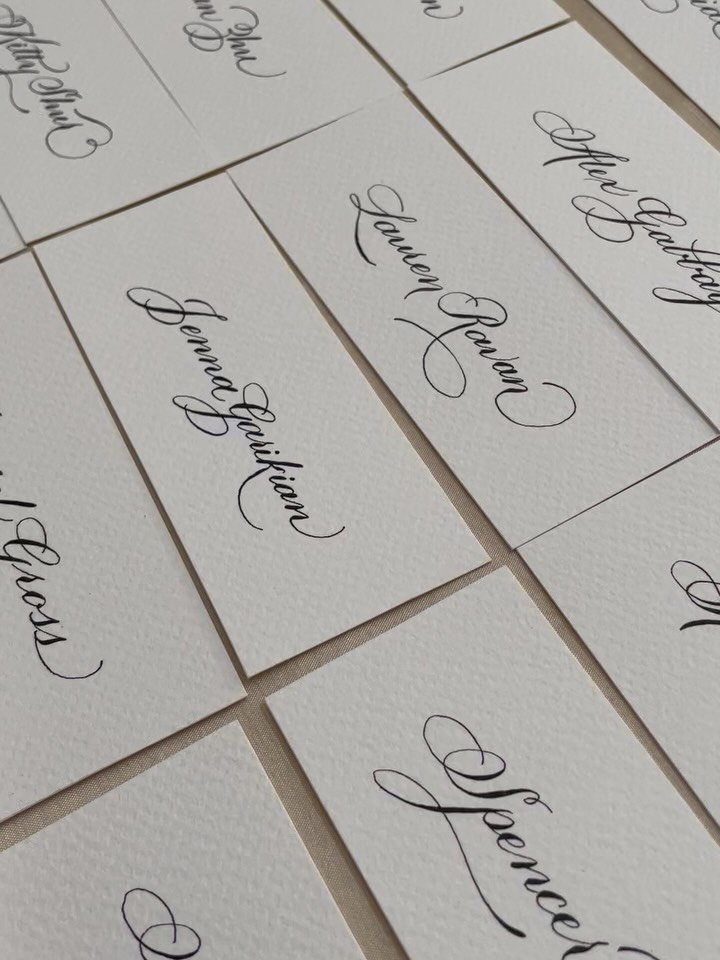 Kitty Shu
Zhu
Alex Gabbay
Lauren Rawan
Jenna Garikian
Gross
Spencer